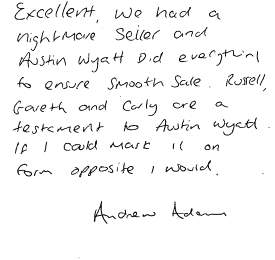 Excellent, we had a
nightmare Seller and
Austin Wyatt Did everything
to ensure smooth Sale. Russell,
Gareth and Carly are a
testament to Austin Wyatt.
If I could mark 11 on
form opposite I would.
Andrew Adams